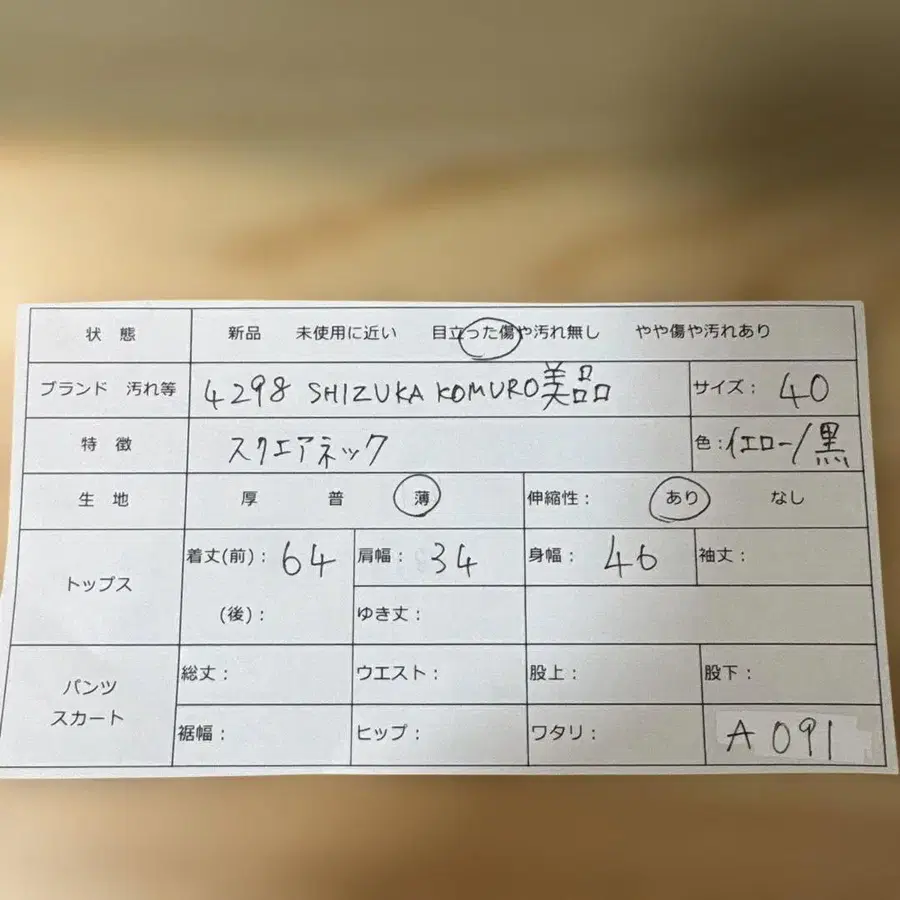 状態 新品 未使用に近い 目立った傷や汚れ無し やや傷や汚れあり
ブランド 汚れ等 4298 SHIZUKA KOMURO美品 サイズ： 40
特徴 スクエアネック 色：イエロー/黒
生地 厚 普 薄 伸縮性： あり なし
トップス 着丈(前)： 64 肩幅： 34 身幅： 46 袖丈：
(後)： ゆき丈：
パンツ スカート 総丈： ウエスト： 股上： 股下：
裾幅： ヒップ： ワタリ： A 091